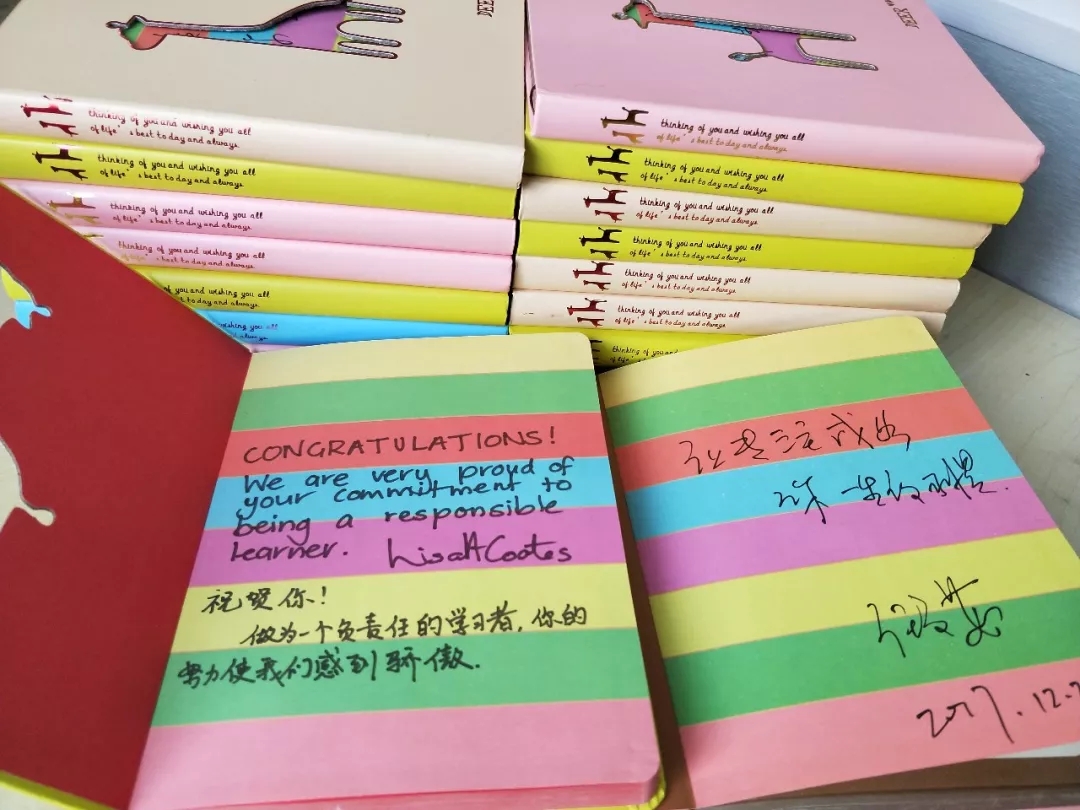 DEER
thinking of you and wishing you all
of life's best today and always.
thinking of you and wishing you all
of life's best today and always.
thinking of you and wishing you all
of life's best today and always.
thinking of you and wishing you all
of life's best today and always.
of you and wishing you all
best today and always.
wishing you all
DEER
thinking of you and wishing you all
of life's best today and always.
thinking of you and wishing you all
of life's best today and always.
thinking of you and wishing you all
of life's best today and always.
thinking of you and wishing you all
of life's best today and always.
thinking of you and wishing you all
of life's best today and always.
thinking of you and wishing you all
of life's best today and always.
thinking of you and
of life's best
CONGRATULATIONS!
We are very proud of
your commitment to
being a responsible
learner. Lisa H Coates
祝贺你!
做为一个负责任的学习者,你的
努力使我们感到骄傲.
一生的习惯.
2017.12.